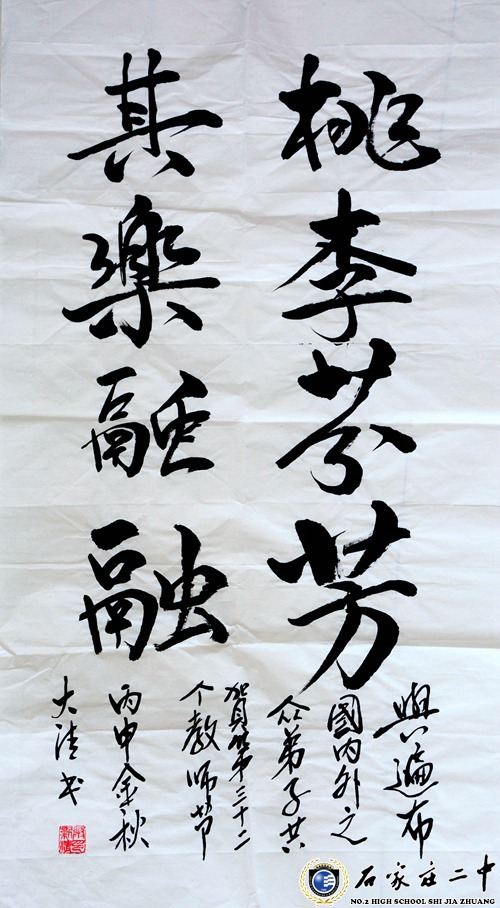 桃李芬芳
其樂融融
與遍布
國內外之
众弟子共
賀第三十二
个教师节
丙申金秋
大清书
石家庄二中
NO.2 HIGH SCHOOL SHI JIA ZHUANG